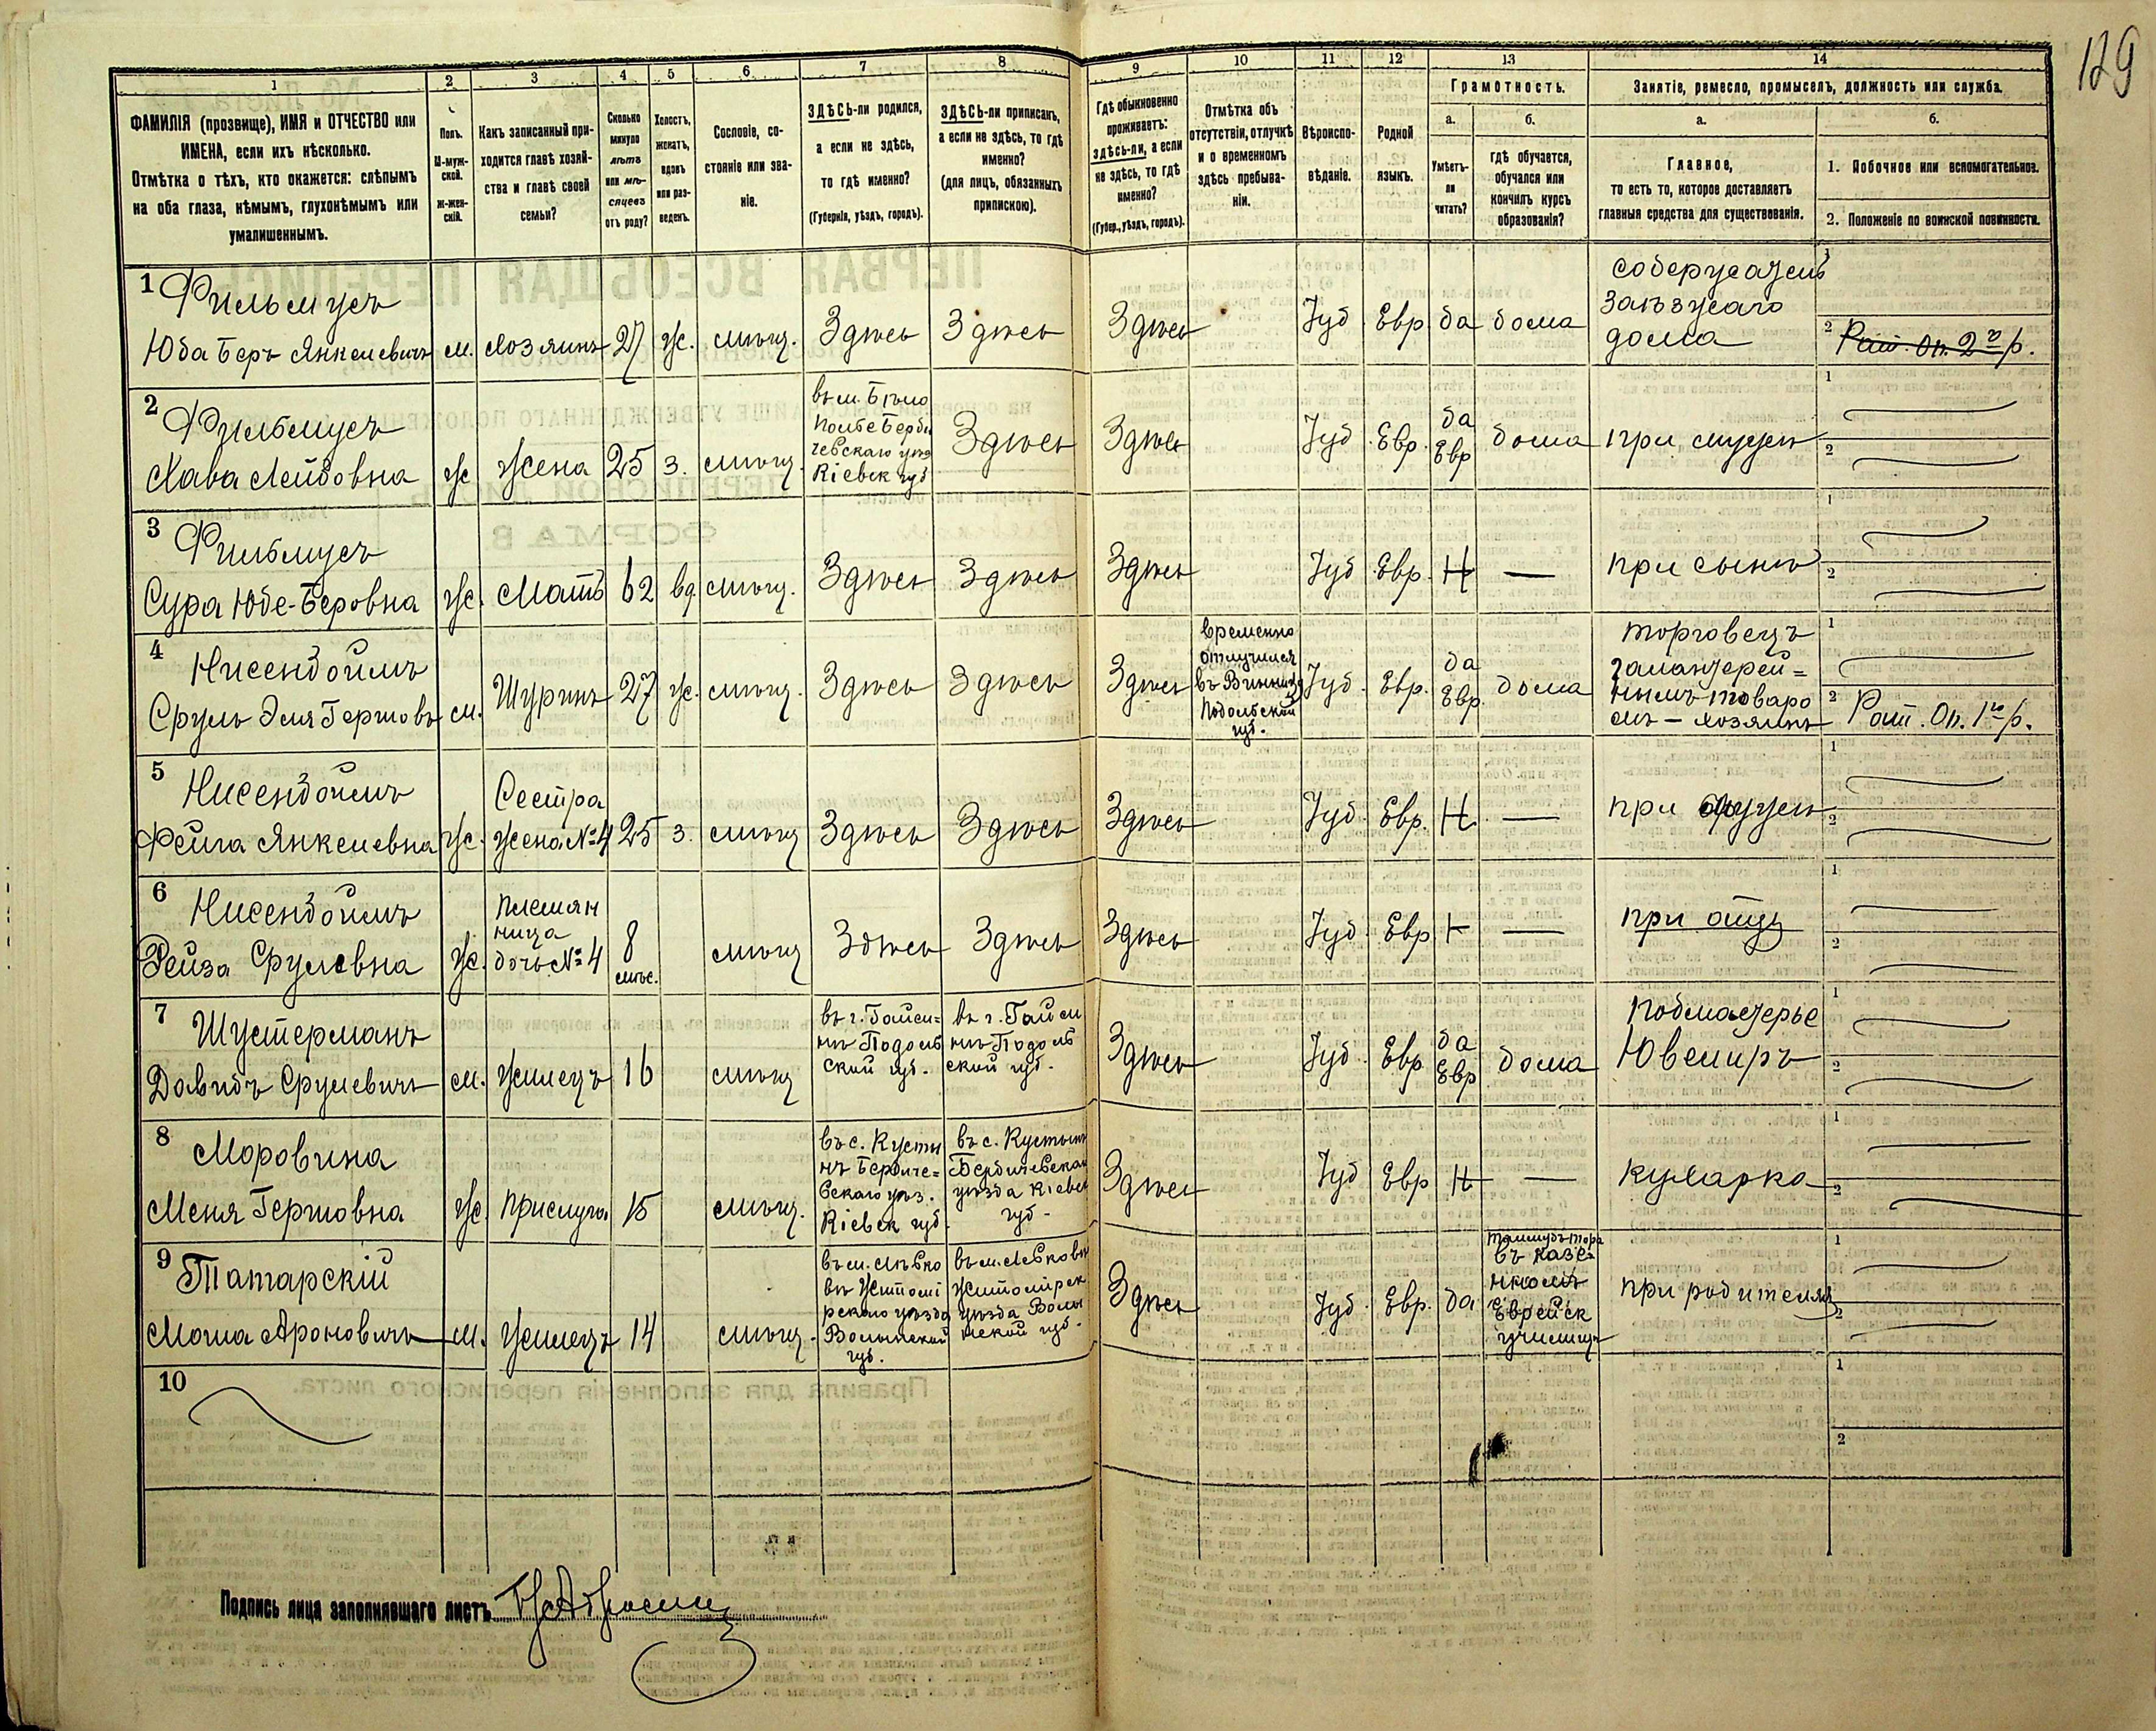 129
1
2
3
4
5
6
7
8
9
10
11
12
13
14
ФАМИЛІЯ (прозвище), ИМЯ и ОТЧЕСТВО или
ИМЕНА, если ихъ нѣсколько.
Отмѣтка о тѣхъ, кто окажется: слѣпымъ
на оба глаза, нѣмымъ, глухонѣмымъ или
умалишеннымъ.
Полъ.
М-муж-
ской.
Ж-жен-
скій.
Какъ записанный при-
ходится главѣ хозяй-
ства и главѣ своей
семьи?
Сколько
минуло
лѣтъ
или мѣ-
сяцевъ
отъ роду?
Холостъ,
женатъ,
вдовъ
или раз-
веденъ.
Сословіе, со-
стояніе или зва-
ніе.
ЗДѢСЬ-ли родился,
а если не здѣсь,
то гдѣ именно?
(Губернія, уѣздъ, городъ).
ЗДѢСЬ-ли приписанъ,
а если не здѣсь, то гдѣ
именно?
(для лицъ, обязанныхъ
припискою).
Гдѣ обыкновенно
проживаетъ:
здѣсь-ли, а если
не здѣсь, то гдѣ
именно?
(Губер., уѣздъ, городъ).
Отмѣтка объ
отсутствіи, отлучкѣ
и о временномъ
здѣсь пребыва-
ніи.
Вѣроиспо-
вѣданіе.
Родной
языкъ.
Грамотность.
а.
Умѣетъ-
ли
читать?
б.
Гдѣ обучается,
обучался или
кончилъ курсъ
образованія?
Занятіе, ремесло, промыселъ, должность или служба.
а.
Главное,
то есть то, которое доставляетъ
главныя средства для существованія.
б.
1. Побочное или вспомогательное.
2. Положеніе по воинской повинности.
1
Фильмусъ
Юба Беръ Янкелевичъ
м.
хозяинъ
27
ж.
мѣщ.
Здѣсь
Здѣсь
Здѣсь
Іуд
Евр
да
дома
содержатель
заѣзжаго
дома
1
2 Рат. Оп. 2го р.
2
Фильмусъ
Хава Лейбовна
ж
жена
25
з.
мѣщ.
въ м. Бѣло
полье Берди
чевскаго уѣз
Кіевск губ
Здѣсь
Здѣсь
Іуд
Евр.
да
Евр
дома
при мужѣ
1
2
3
Фильмусъ
Сура Юбе-Беровна
ж.
Мать
62
вд.
мѣщ.
Здѣсь
Здѣсь
Здѣсь
Іуд
Евр.
Н
—
при сынѣ
1
2
4
Нисенбоймъ
Сруль Эля Гершовъ
м.
Шуринъ
27
ж.
мѣщ.
Здѣсь
Здѣсь
Здѣсь
временно
отлучился
въ Винницу
Подольской
губ.
Іуд.
Евр.
да
Евр.
дома
торговецъ
галантерей=
нымъ товаро
мъ — хозяинъ
1
2 Рат. Оп. 1го р.
5
Нисенбоймъ
Фейга Янкелевна
ж.
Сестра
жена № 4
25
з.
мѣщ
Здѣсь
Здѣсь
Здѣсь
Іуд.
Евр.
Н.
—
при мужѣ
1
2
6
Нисенбоймъ
Рейза Срулевна
ж.
племян
ница
дочь № 4
8
мѣс.
мѣщ
Здѣсь
Здѣсь
Здѣсь
Іуд.
Евр
Н
—
при отцѣ
1
2
7
Шустерманъ
Давидъ Срулевичъ
м.
жилецъ
16
мѣщ
въ г. Гайси=
нѣ Подоль
ской губ.
въ г. Гайси
нѣ Подоль
ской губ.
Здѣсь
Іуд.
Евр.
да
Евр
дома
Подмастерье
Ювелиръ
1
2
8
Моровина
Меня Гершовна
ж.
прислуга
15
мѣщ.
въ с. Кусты
нѣ Бердиче=
вскаго уѣз.
Кіевск губ.
въ с. Кустынѣ
Бердичевскаго
уѣзда Кіевск
губ.
Здѣсь
Іуд
Евр
Н
—
кухарка
1
2
9
Татарскій
Моша Ароновичъ
м.
жилецъ
14
мѣщ.
въ м. Лѣвко
вѣ Житомі
рскаго уѣзда
Волынской
губ.
въ м. Левковѣ
Житомірск
уѣзда Волы
нской губ.
Здѣсь
Іуд.
Евр.
да
талмудъ тора
въ казе=
нномъ
Еврейск
училищѣ
при родителяхъ
1
2
10
1
2
Подпись лица заполнявшаго листъ